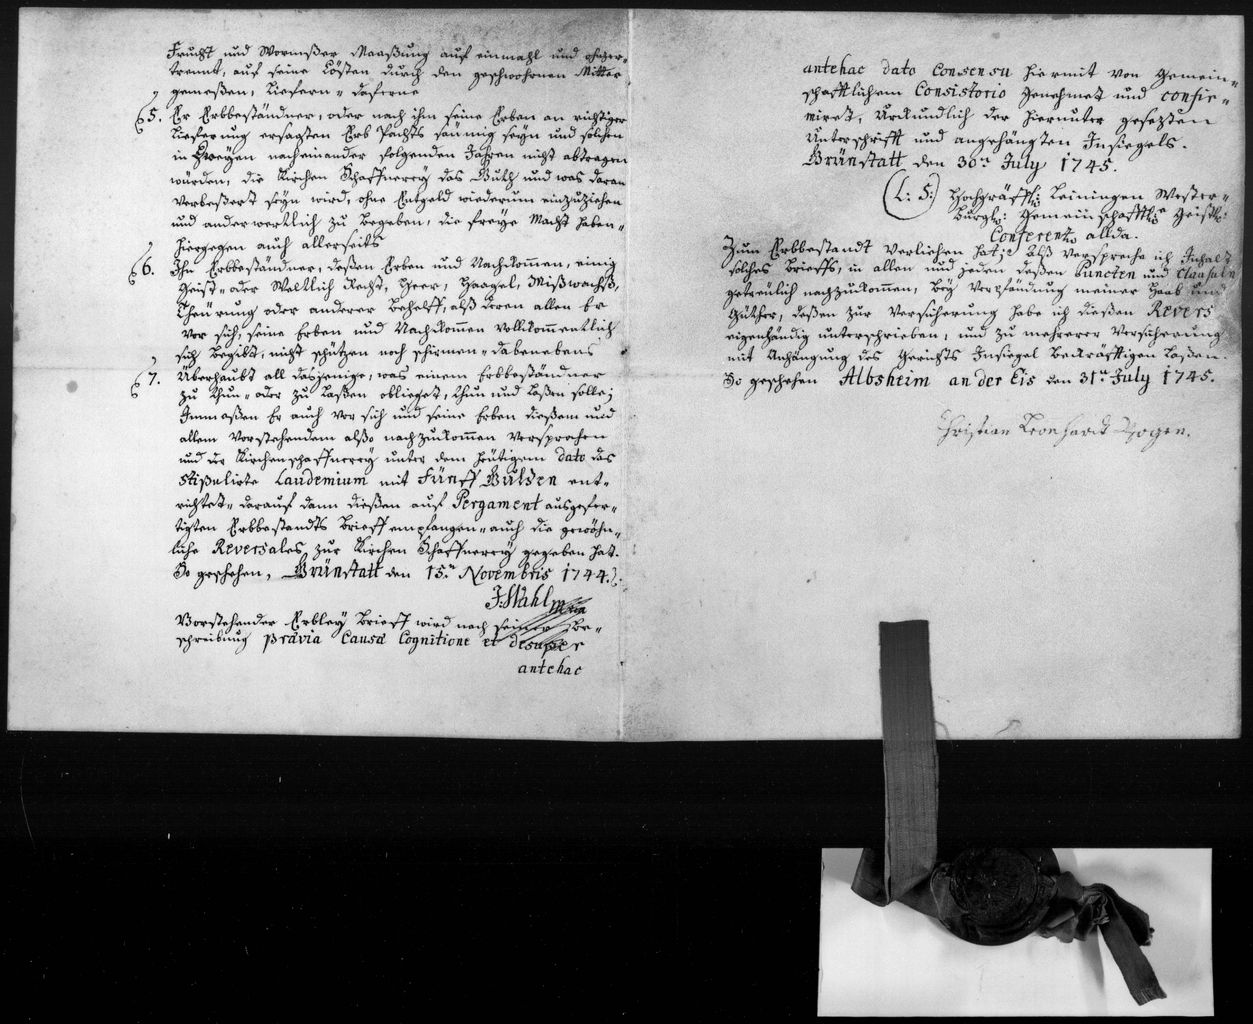 Frucht und Wormßer Maaßung auf einmahl und ohnzer-
trennt, auf seine Cösten durch den geschwohrnen Mitter
gemeßen, Liefern, daferne
5. Er Erbbeständner, oder nach ihm seine Erben an richtiger
Lieferung ersagten Erb Pfachts säumig seyn und solchen
in Zweyen nacheinander folgenden Jahren nicht abtragen
würden, die Kirchen Schaffnerey das Guth und was daran
verbeßert seyn wird, ohne Entgeld wiederum einzuziehen
und anderwertlich zu begeben, die freye Macht haben,
hiergegen auch allerseits
6. Ihn Erbbeständner, deßen Erben und Nachkommen, einig
Geist- oder Weltlich Recht, Heer, Haagel, Mißwachß,
Theürung oder anderer Behelff, alß deren allen Er
vor sich, seine Erben und Nachkommen vollkommentlich
sich begibt, nicht schützen noch schirmen, dabenebens
7. Überhaubt all dasjenige, was einem Erbbeständner
zu thun- oder zu laßen oblieget, thun und laßen solle;
Immaßen Er auch vor sich und seine Erben dießem und
allem vorstehendem alßo nachzukommen versprochen
und der Kirchenschaffnerey unter dem heutigem dato das
stipulirte Laudemium mit Fünff Gulden ent-
richtet, darauf dann dießen auf Pergament ausgefer-
tigten Erbbestandts Brieff empfangen, auch die gewöhn-
liche Reversales zur Kirchen Schaffnerey gegeben hat.
So geschehen, Grünstatt den 15.ten Novembris 1744.
J: Wahl
Vorstehender Erbley Brieff wird nach seiner Be-
schreibung prævia Causæ Cognitione et desuper
antehac
antehac dato Consensu hiermit von Gemein-
schafftlichem Consistorio genehmet und confir-
miret, Urkundlich der hierunter gesezten
Unterschrifft und angehängten Insiegels.
Grünstatt den 30.ten July 1745.
(L: S:) Hochgräffl: Leiningen Wester-
burgl: Gemeinschafftl: Geistl:
Conferent allda.
Zum Erbbestandt verliehen hat; Alß verspreche ich Inhalt
solches Brieffs, in allen und jeden deßen Puncten und Clausuln
getreülich nachzukommen, bey Verpfändung meiner Haab und
Güther, deßen zur Versicherung habe ich dießen Revers
eigenhändig unterschrieben, und zu mehrerer Versicherung
mit Anhängung des Gerichts Insiegel bekräfftigen laßen.
So geschehen Albsheim an der Eis den 31.ten July 1745.
Christian Leonhardt